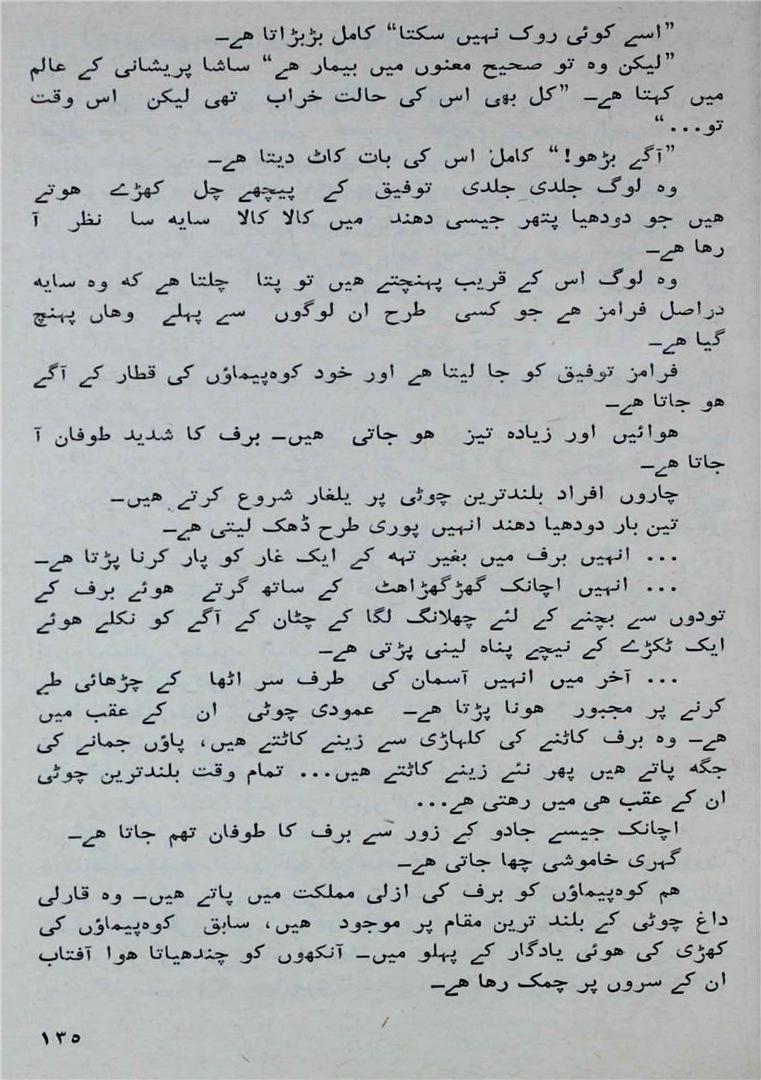 ”اسے کوئی روک نہیں سکتا“ کامل بڑبڑاتا ھے۔
”لیکن وہ تو صحیح معنوں میں بیمار ھے“ ساشا پریشانی کے عالم
میں کہتا ھے۔ ”کل بھی اس کی حالت خراب تھی لیکن اس وقت
تو...“
”آگے بڑھو!“ کامل اس کی بات کاٹ دیتا ھے۔
وہ لوگ جلدی جلدی توفیق کے پیچھے چل کھڑے ھوتے
ھیں جو دودھیا پتھر جیسی دھند میں کالا کالا سایہ سا نظر آ
رھا ھے۔
وہ لوگ اس کے قریب پہنچتے ھیں تو پتا چلتا ھے کہ وہ سایہ
دراصل فرامز ھے جو کسی طرح ان لوگوں سے پہلے وھاں پہنچ
گیا ھے۔
فرامز توفیق کو جا لیتا ھے اور خود کوہ‌پیماؤں کی قطار کے آگے
ھو جاتا ھے۔
ھوائیں اور زیادہ تیز ھو جاتی ھیں۔ برف کا شدید طوفان آ
جاتا ھے۔
چاروں افراد بلندترین چوٹی پر یلغار شروع کرتے ھیں۔
تین بار دودھیا دھند انہیں پوری طرح ڈھک لیتی ھے۔
... انہیں برف میں بغیر تہہ کے ایک غار کو پار کرنا پڑتا ھے۔
... انہیں اچانک گھڑگھڑاھٹ کے ساتھ گرتے ھوئے برف کے
تودوں سے بچنے کے لئے چھلانگ لگا کے چٹان کے آگے کو نکلے ھوئے
ایک ٹکڑے کے نیچے پناہ لینی پڑتی ھے۔
... آخر میں انہیں آسمان کی طرف سر اٹھا کے چڑھائی طے
کرنے پر مجبور ھونا پڑتا ھے۔ عمودی چوٹی ان کے عقب میں
ھے۔ وہ برف کاٹنے کی کلہاڑی سے زینے کاٹتے ھیں، پاؤں جمانے کی
جگہ پاتے ھیں پھر نئے زینے کاٹتے ھیں... تمام وقت بلندترین چوٹی
ان کے عقب ھی میں رھتی ھے...
اچانک جیسے جادو کے زور سے برف کا طوفان تھم جاتا ھے۔
گہری خاموشی چھا جاتی ھے۔
ھم کوہ‌پیماؤں کو برف کی ازلی مملکت میں پاتے ھیں۔ وہ قارلی
داغ چوٹی کے بلند ترین مقام پر موجود ھیں، سابق کوہ‌پیماؤں کی
کھڑی کی ھوئی یادگار کے پہلو میں۔ آنکھوں کو چندھیاتا ھوا آفتاب
ان کے سروں پر چمک رھا ھے۔
۱۳۵